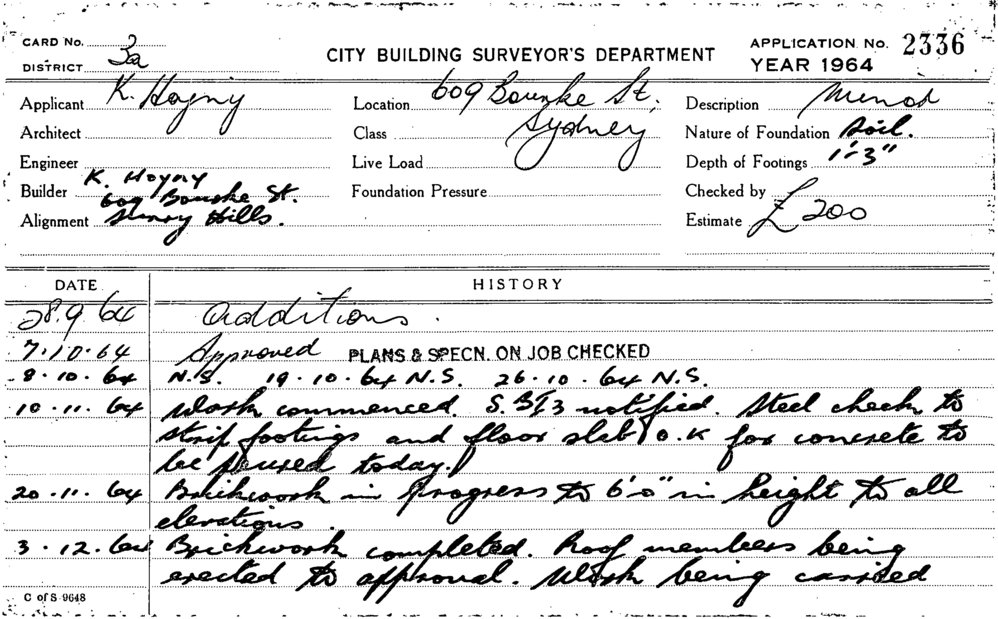 CARD No.
DISTRICT 3a
CITY BUILDING SURVEYOR'S DEPARTMENT
APPLICATION No. 2336
YEAR 1964
Applicant K. Hoyny
Location 609 Bourke St,
Sydney
Description Minor
Architect
Class
Nature of Foundation Soil.
Engineer
Live Load
Depth of Footings 1'-3"
Builder K. Hoyny
609 Bourke St.
Foundation Pressure
Checked by
Alignment Surry Hills.
Estimate £200
DATE HISTORY
28.9.64 Additions.
7.10.64 Approved PLANS & SPECN. ON JOB CHECKED
8.10.64 N.S. 19.10.64 N.S. 26.10.64 N.S.
10.11.64 Work commenced. notified. Steel check to
strip footings and floor slab O.K for concrete to
be poured today.
20.11.64 Brickwork in progress to 6'0" in height to all
elevations.
3.12.64 Brickwork completed. Roof members being
erected to approval. Work being carried
C of S 9648